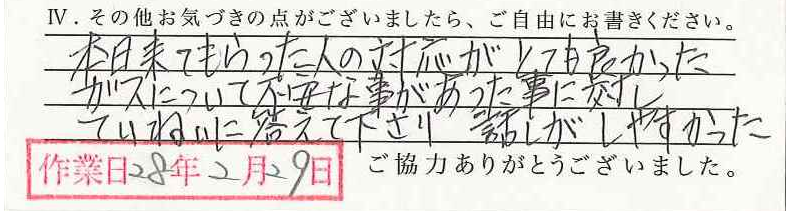 Ⅳ．その他お気づきの点がございましたら、ご自由にお書きください。
本日来てもらった人の対応がとても良かった
ガスについて不安な事があった事に対し
ていねいに答えて下さり 話しがしやすかった
作業日28年2月29日
ご協力ありがとうございました。